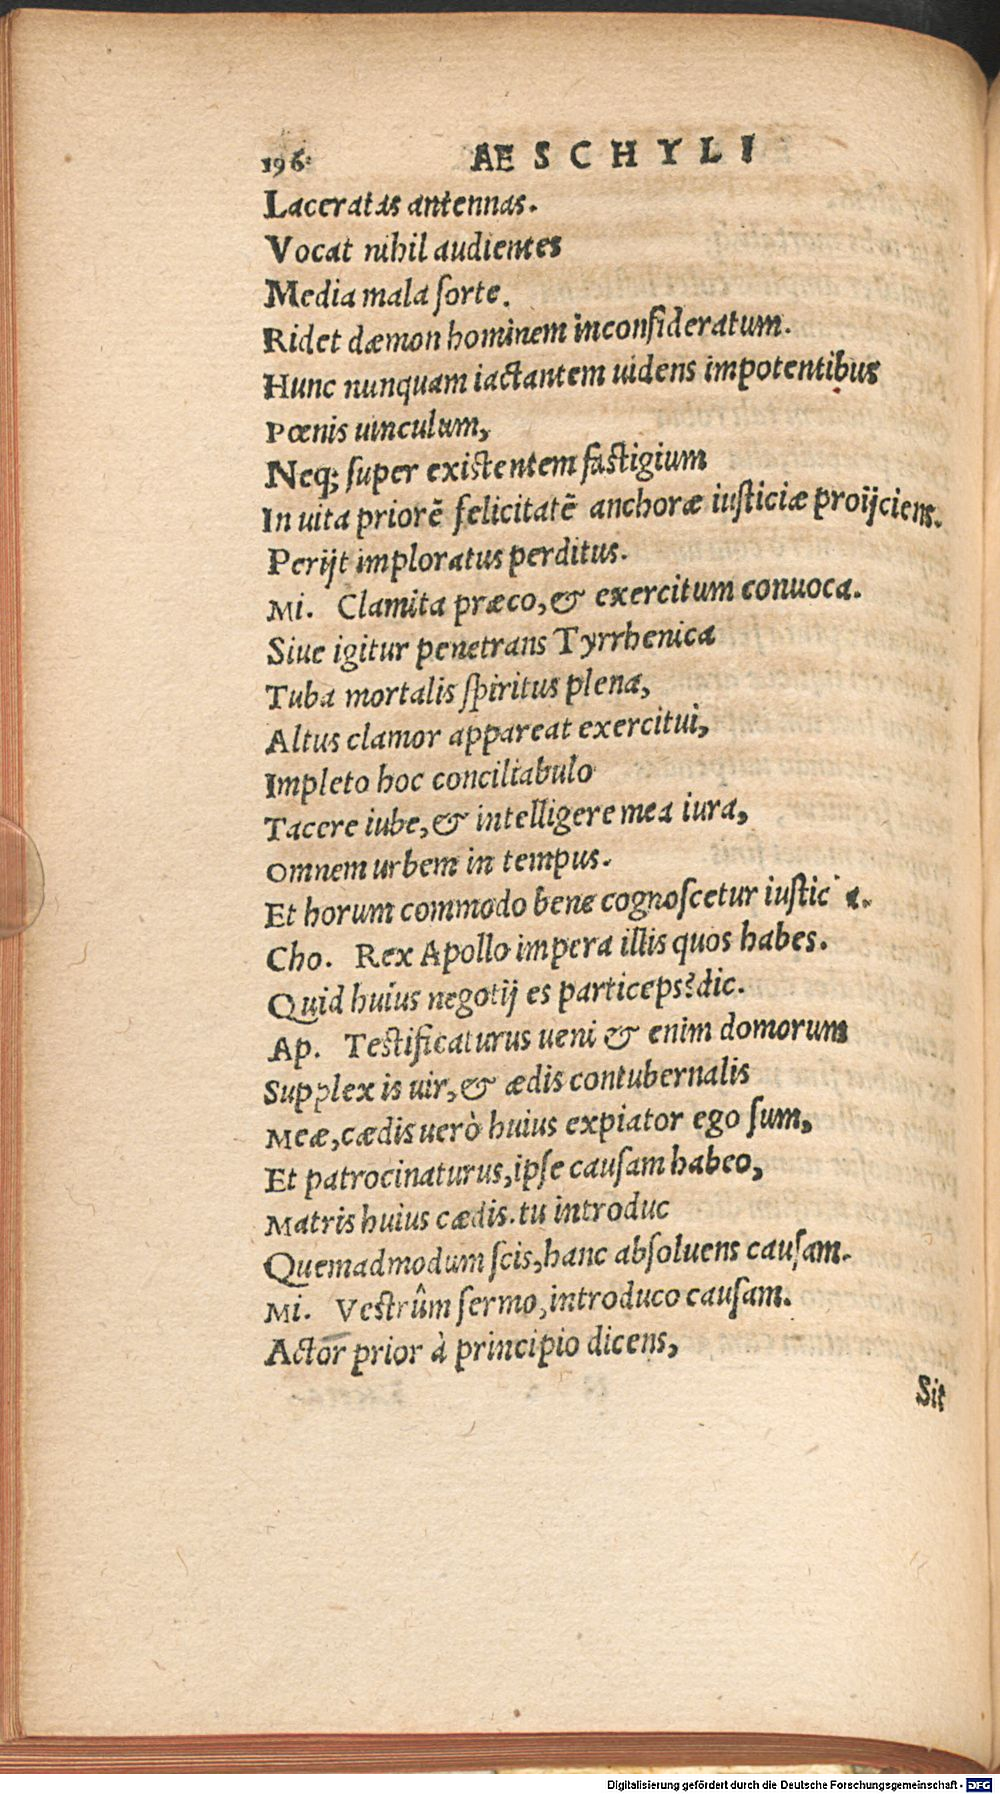 196 AESCHYLI
Laceratas antennas.
Vocat nihil audientes
Media mala ſorte.
Ridet dæmon hominem inconſideratum.
Hunc nunquam iactantem uidens impotentibus
Pœnis uinculum,
Neq; ſuper existentem fastigium
In uita priorẽ felicitatẽ anchoræ iuſticiæ proijciens.
Perijt imploratus perditus.
Mi. Clamita præco, & exercitum conuoca.
Siue igitur penetrans Tyrrhenica
Tuba mortalis ſpiritus plena,
Altus clamor appareat exercitui,
Impleto hoc conciliabulo
Tacere iube, & intelligere mea iura,
Omnem urbem in tempus.
Et horum commodo bene cognoſcetur iuſticia.
Cho. Rex Apollo impera illis quos habes.
Quid huius negotij es particeps? dic.
Ap. Testificaturus ueni & enim domorum
Supplex is uir, & ædis contubernalis
Meæ, cædis uerò huius expiator ego ſum,
Et patrocinaturus, ipſe cauſam habeo,
Matris huius cædis. tu introduc
Quemadmodum ſcis, hanc abſoluens cauſam.
Mi. Vestrûm ſermo, introduco cauſam.
Actor prior à principio dicens,
Sit
Digitalisierung gefördert durch die Deutsche Forschungsgemeinschaft - DFG